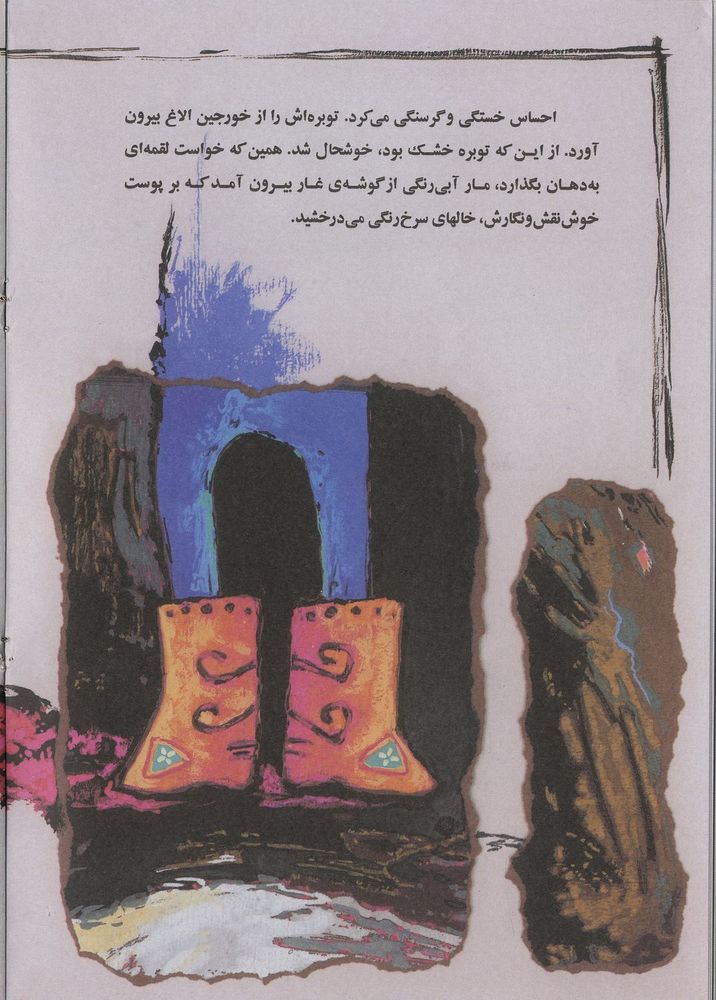 احساس خستگی و گرسنگی می‌کرد. توبره‌اش را از خورجین الاغ بیرون
آورد. از این که توبره خشک بود، خوشحال شد. همین که خواست لقمه‌ای
به‌دهان بگذارد، مار آبی‌رنگی از گوشه‌ی غار بیرون آمد که بر پوست
خوش‌نقش‌ونگارش، خالهای سرخ‌رنگی می‌درخشید.